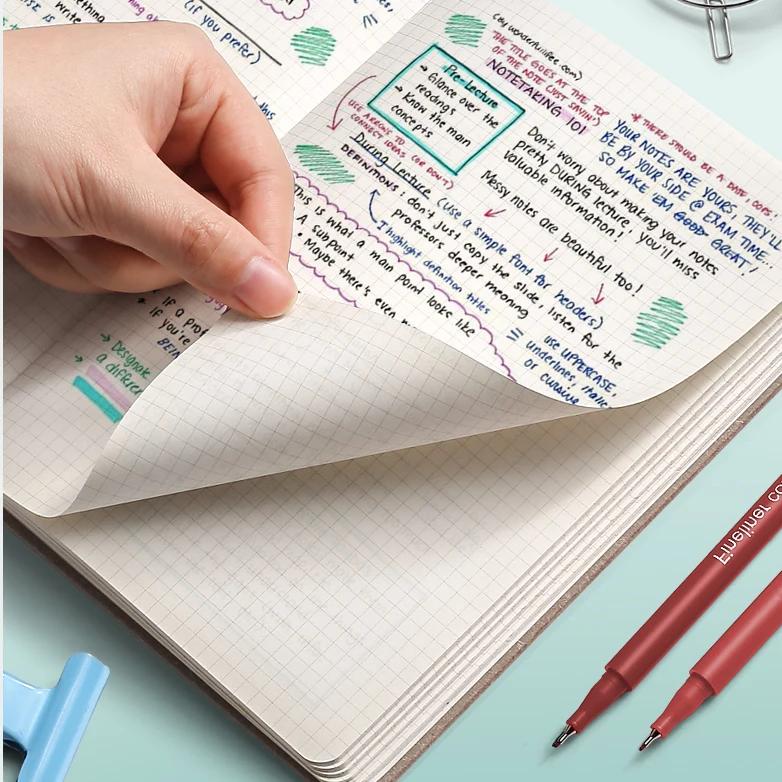 something
write
(if you prefer)
this
(by wonderfullifee.com)
THE TITLE GOES AT THE TOP
OF THE NOTE (JUST SAYIN')
NOTETAKING 101
* THERE SHOULD BE A DATE, OOPS!
YOUR NOTES ARE YOURS, THEY'LL
BE BY YOUR SIDE @ EXAM TIME..
SO MAKE 'EM GOOD GREAT!
Pre-Lecture
→ Glance over the
readings
→ Know the main
concepts
Don't worry about making your notes
pretty DURING lecture, you'll miss
valuable information!
Messy notes are beautiful too!
(USE ARROWS TO
CONNECT IDEAS (OR DON'T)
During Lecture (use a simple font for headers)
DEFINITIONS: don't just copy the slide, listen for the
professors deeper meaning
I highlight definition titles
This is what a main point looks like
• A subpoint
• Maybe there's even
use UPPERCASE,
underlines, italic
or cursive
→ If a prof
If you're
→ Designate
a differen
Fineliner co